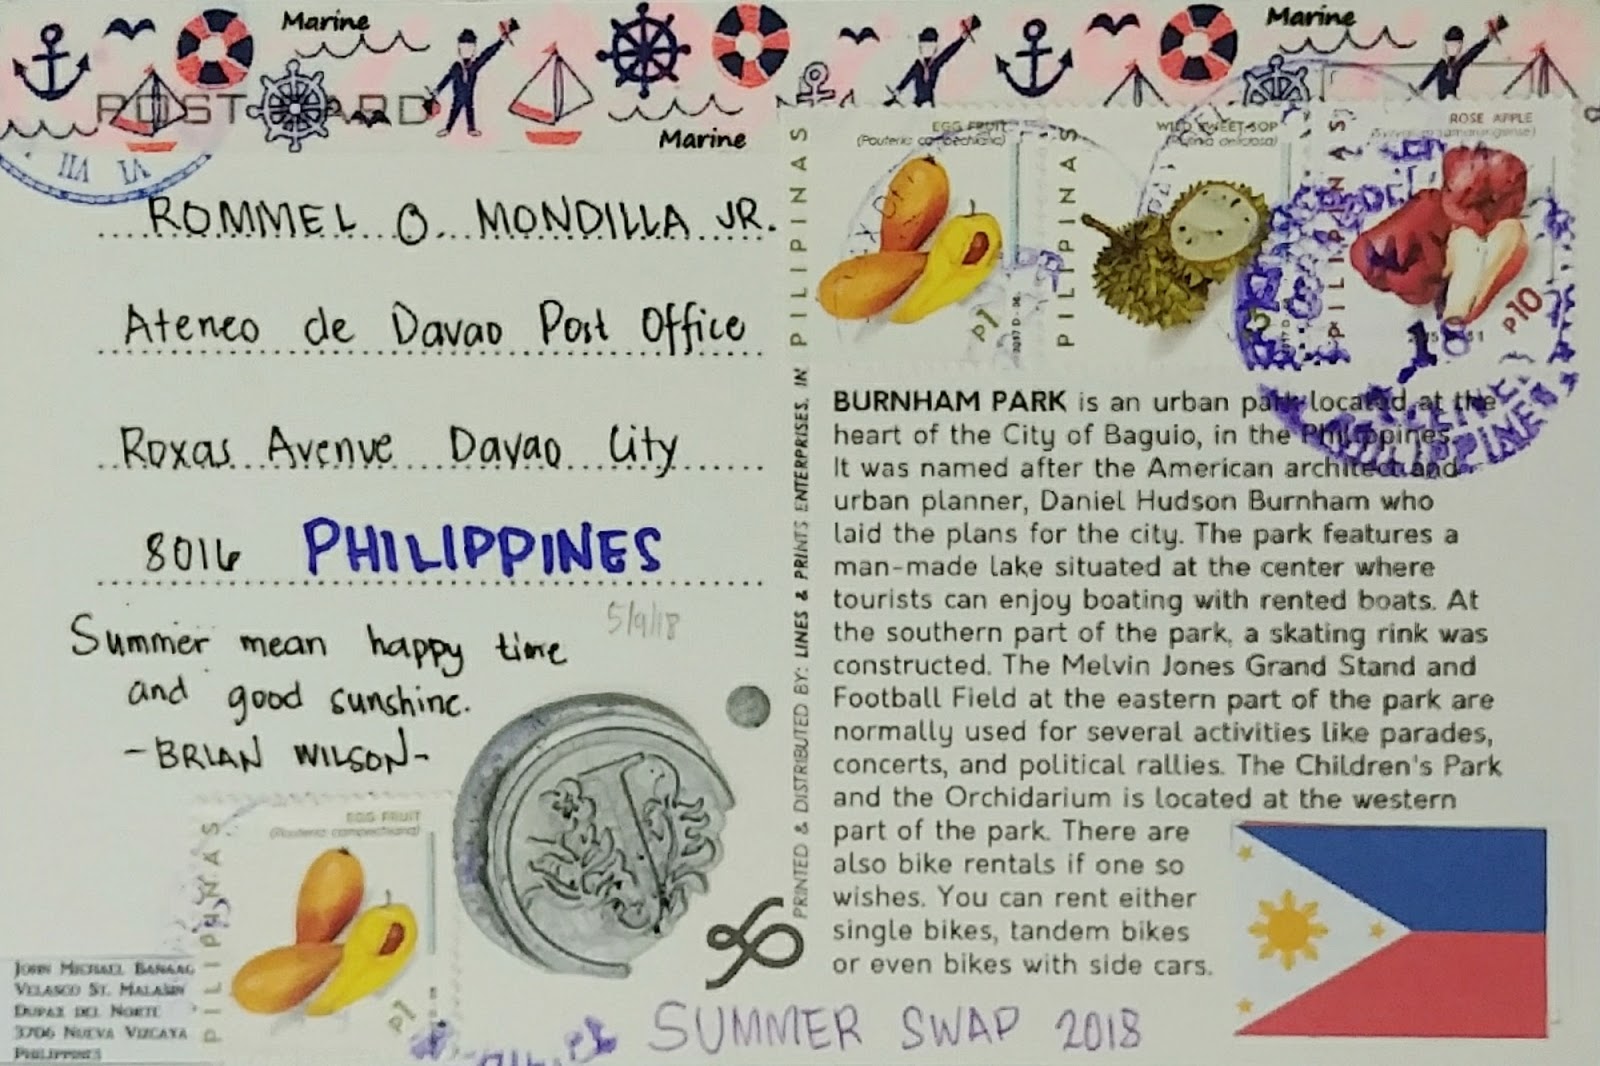 Marine
Marine
POSTCARD
Marine
VII VI
ROMMEL O. MONDILLA JR.
Ateneo de Davao Post Office
Roxas Avenue Davao City
8016 PHILIPPINES
5/9/18
Summer mean happy time
and good sunshine.
-BRIAN WILSON-
PILIPINAS
EGG FRUIT
(Pouteria campechiana)
P1
JOHN MICHAEL BANAAG
VELASCO ST. MALASIN
DUPAX DEL NORTE
3706 NUEVA VIZCAYA
PHILIPPINES
SUMMER SWAP 2018
PRINTED & DISTRIBUTED BY: LINES & PRINTS ENTERPRISES, IN
PILIPINAS
EGG FRUIT
(Pouteria campechiana)
P1
2017 D
PILIPINAS
WILD SWEET-SOP
PILIPINAS
ROSE APPLE
P10
18
PHILIPPINES
BURNHAM PARK is an urban park located at the
heart of the City of Baguio, in the Philippines.
It was named after the American architect and
urban planner, Daniel Hudson Burnham who
laid the plans for the city. The park features a
man-made lake situated at the center where
tourists can enjoy boating with rented boats. At
the southern part of the park, a skating rink was
constructed. The Melvin Jones Grand Stand and
Football Field at the eastern part of the park are
normally used for several activities like parades,
concerts, and political rallies. The Children's Park
and the Orchidarium is located at the western
part of the park. There are
also bike rentals if one so
wishes. You can rent either
single bikes, tandem bikes
or even bikes with side cars.